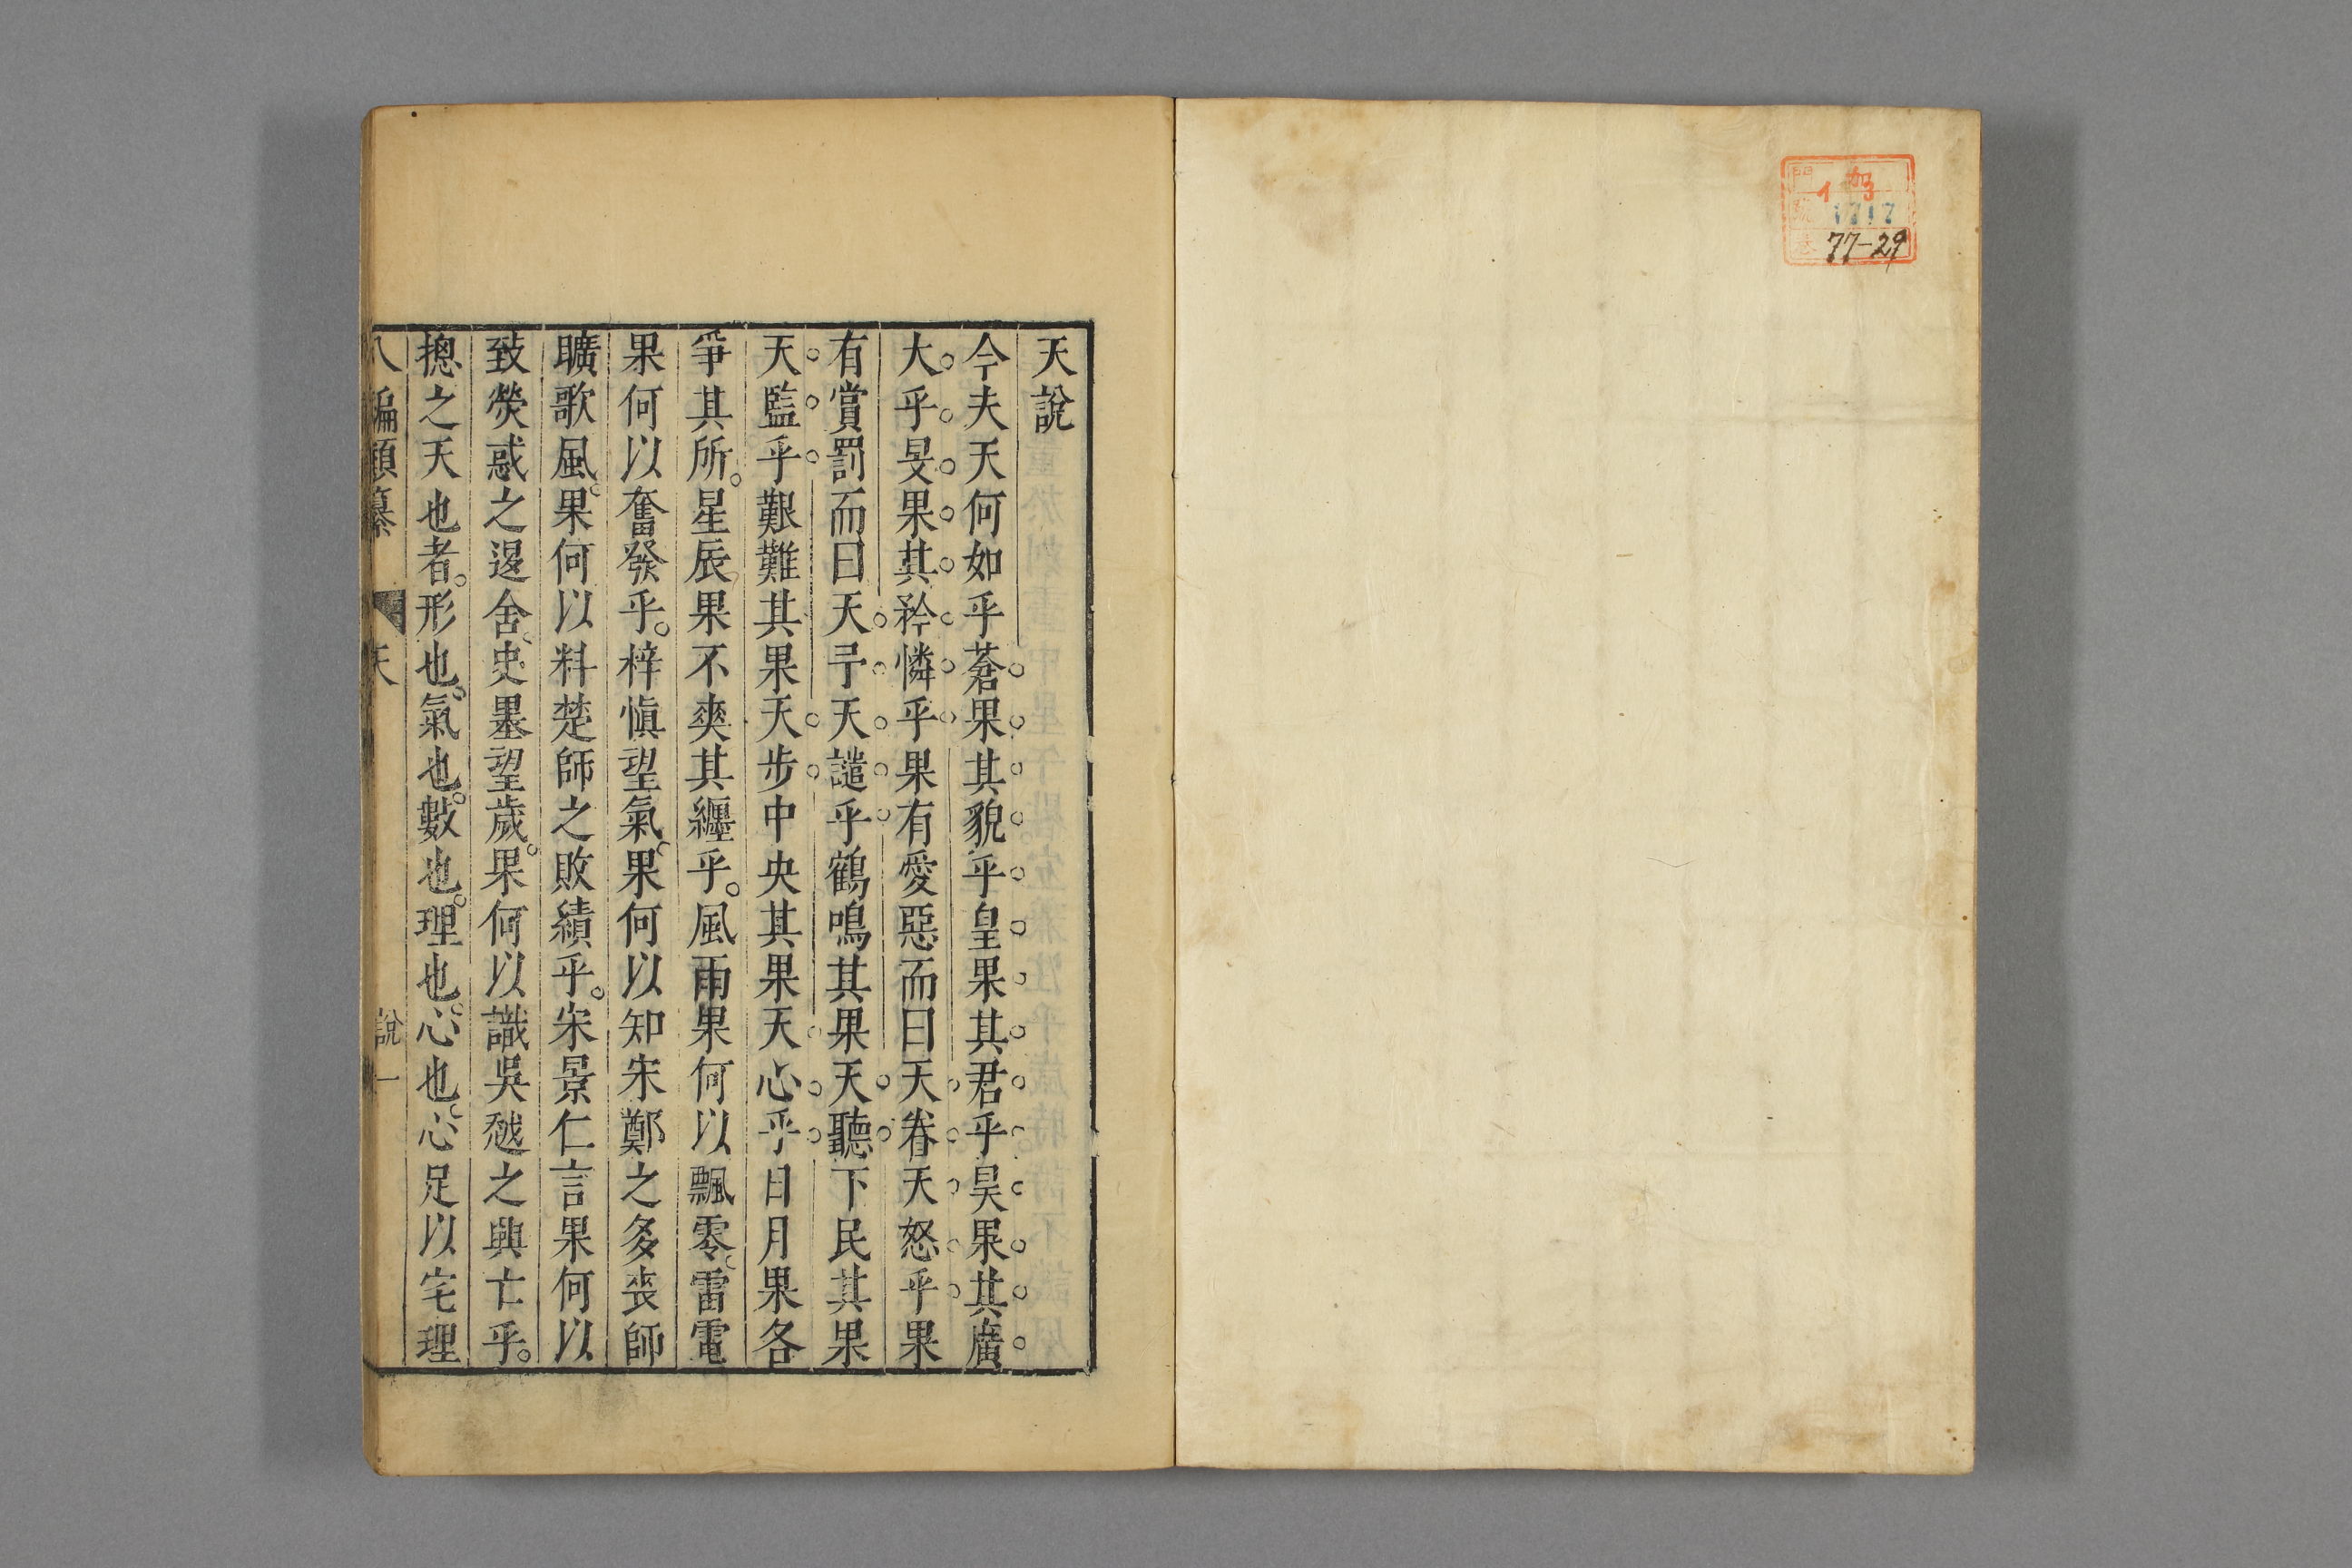 門 イ 
號 1717
卷 77-29
天說
今夫天何如乎蒼果其貌乎皇果其君乎昊果其廣
大乎旻果其矜憐乎果有愛惡而曰天眷天怒乎果
有賞罰而曰天予天譴乎鶴鳴其果天聽下民其果
天監乎艱難其果天步中央其果天心乎日月果各
爭其所星辰果不爽其纏乎風雨果何以飄零雷電
果何以奮發乎梓慎望氣果何以知宋鄭之多喪師
曠歌風果何以料楚師之敗績乎宋景仁言果何以
致熒惑之退舍史墨望歲果何以識吳越之興亡乎
摠之天也者形也氣也數也理也心也心足以宅理
八編類纂 天 說 一